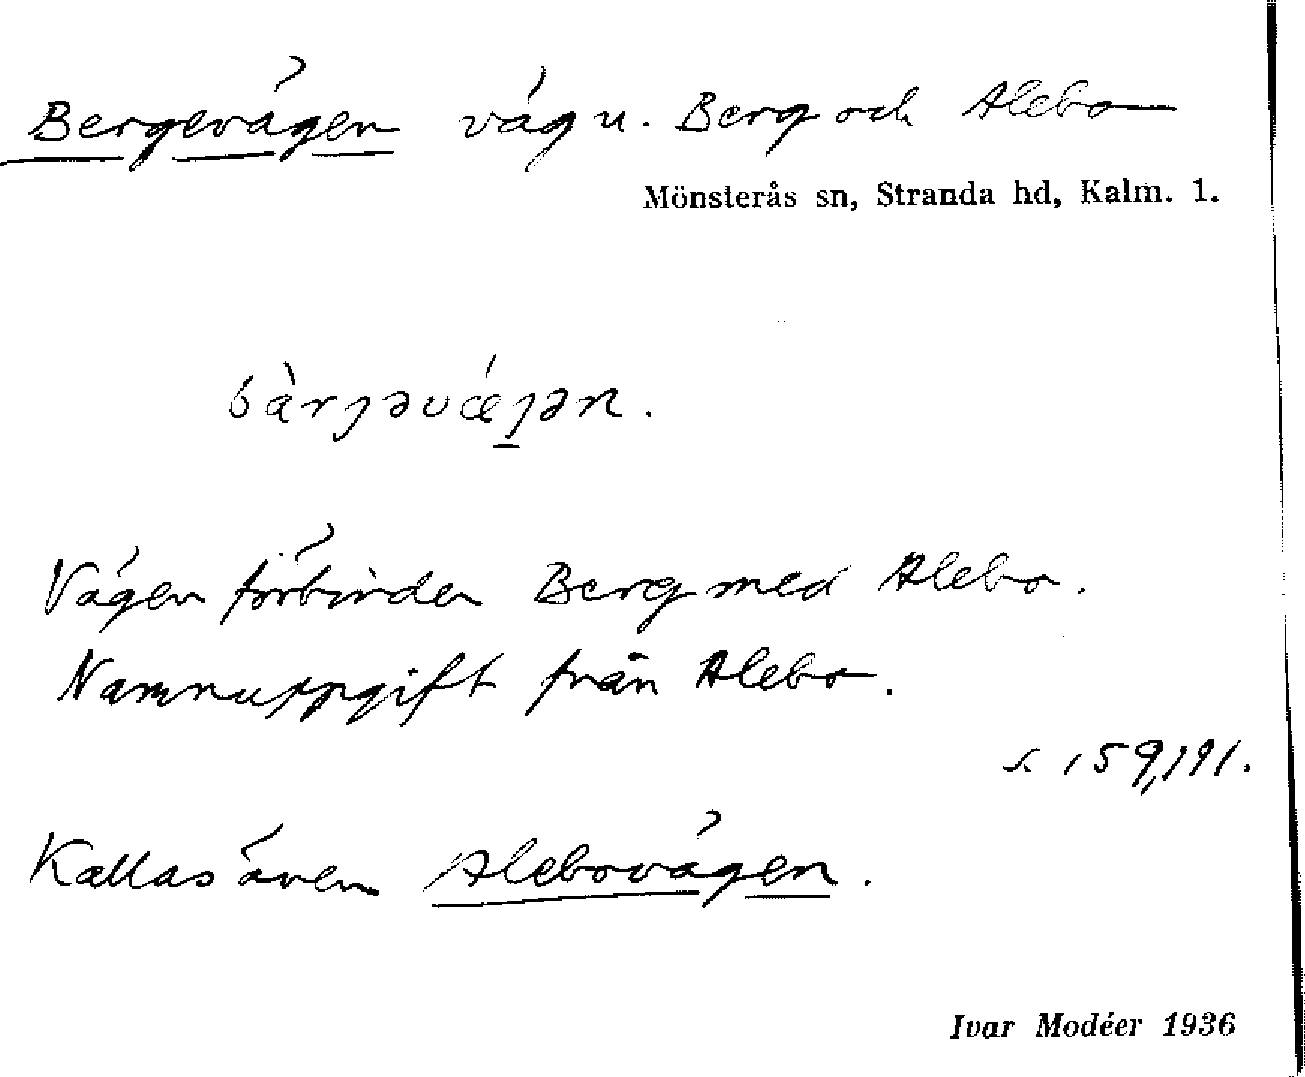 Bergevägen väg u. Berg och Alebo
Mönsterås sn, Stranda hd, Kalm. l.
bàrȷəvǽȷən.
Vägen förbinder Berg med Alebo.
Namnuppgift från Alebo.
s. 159,191.
Kallas även Alebovägen.
Ivar Modéer 1936